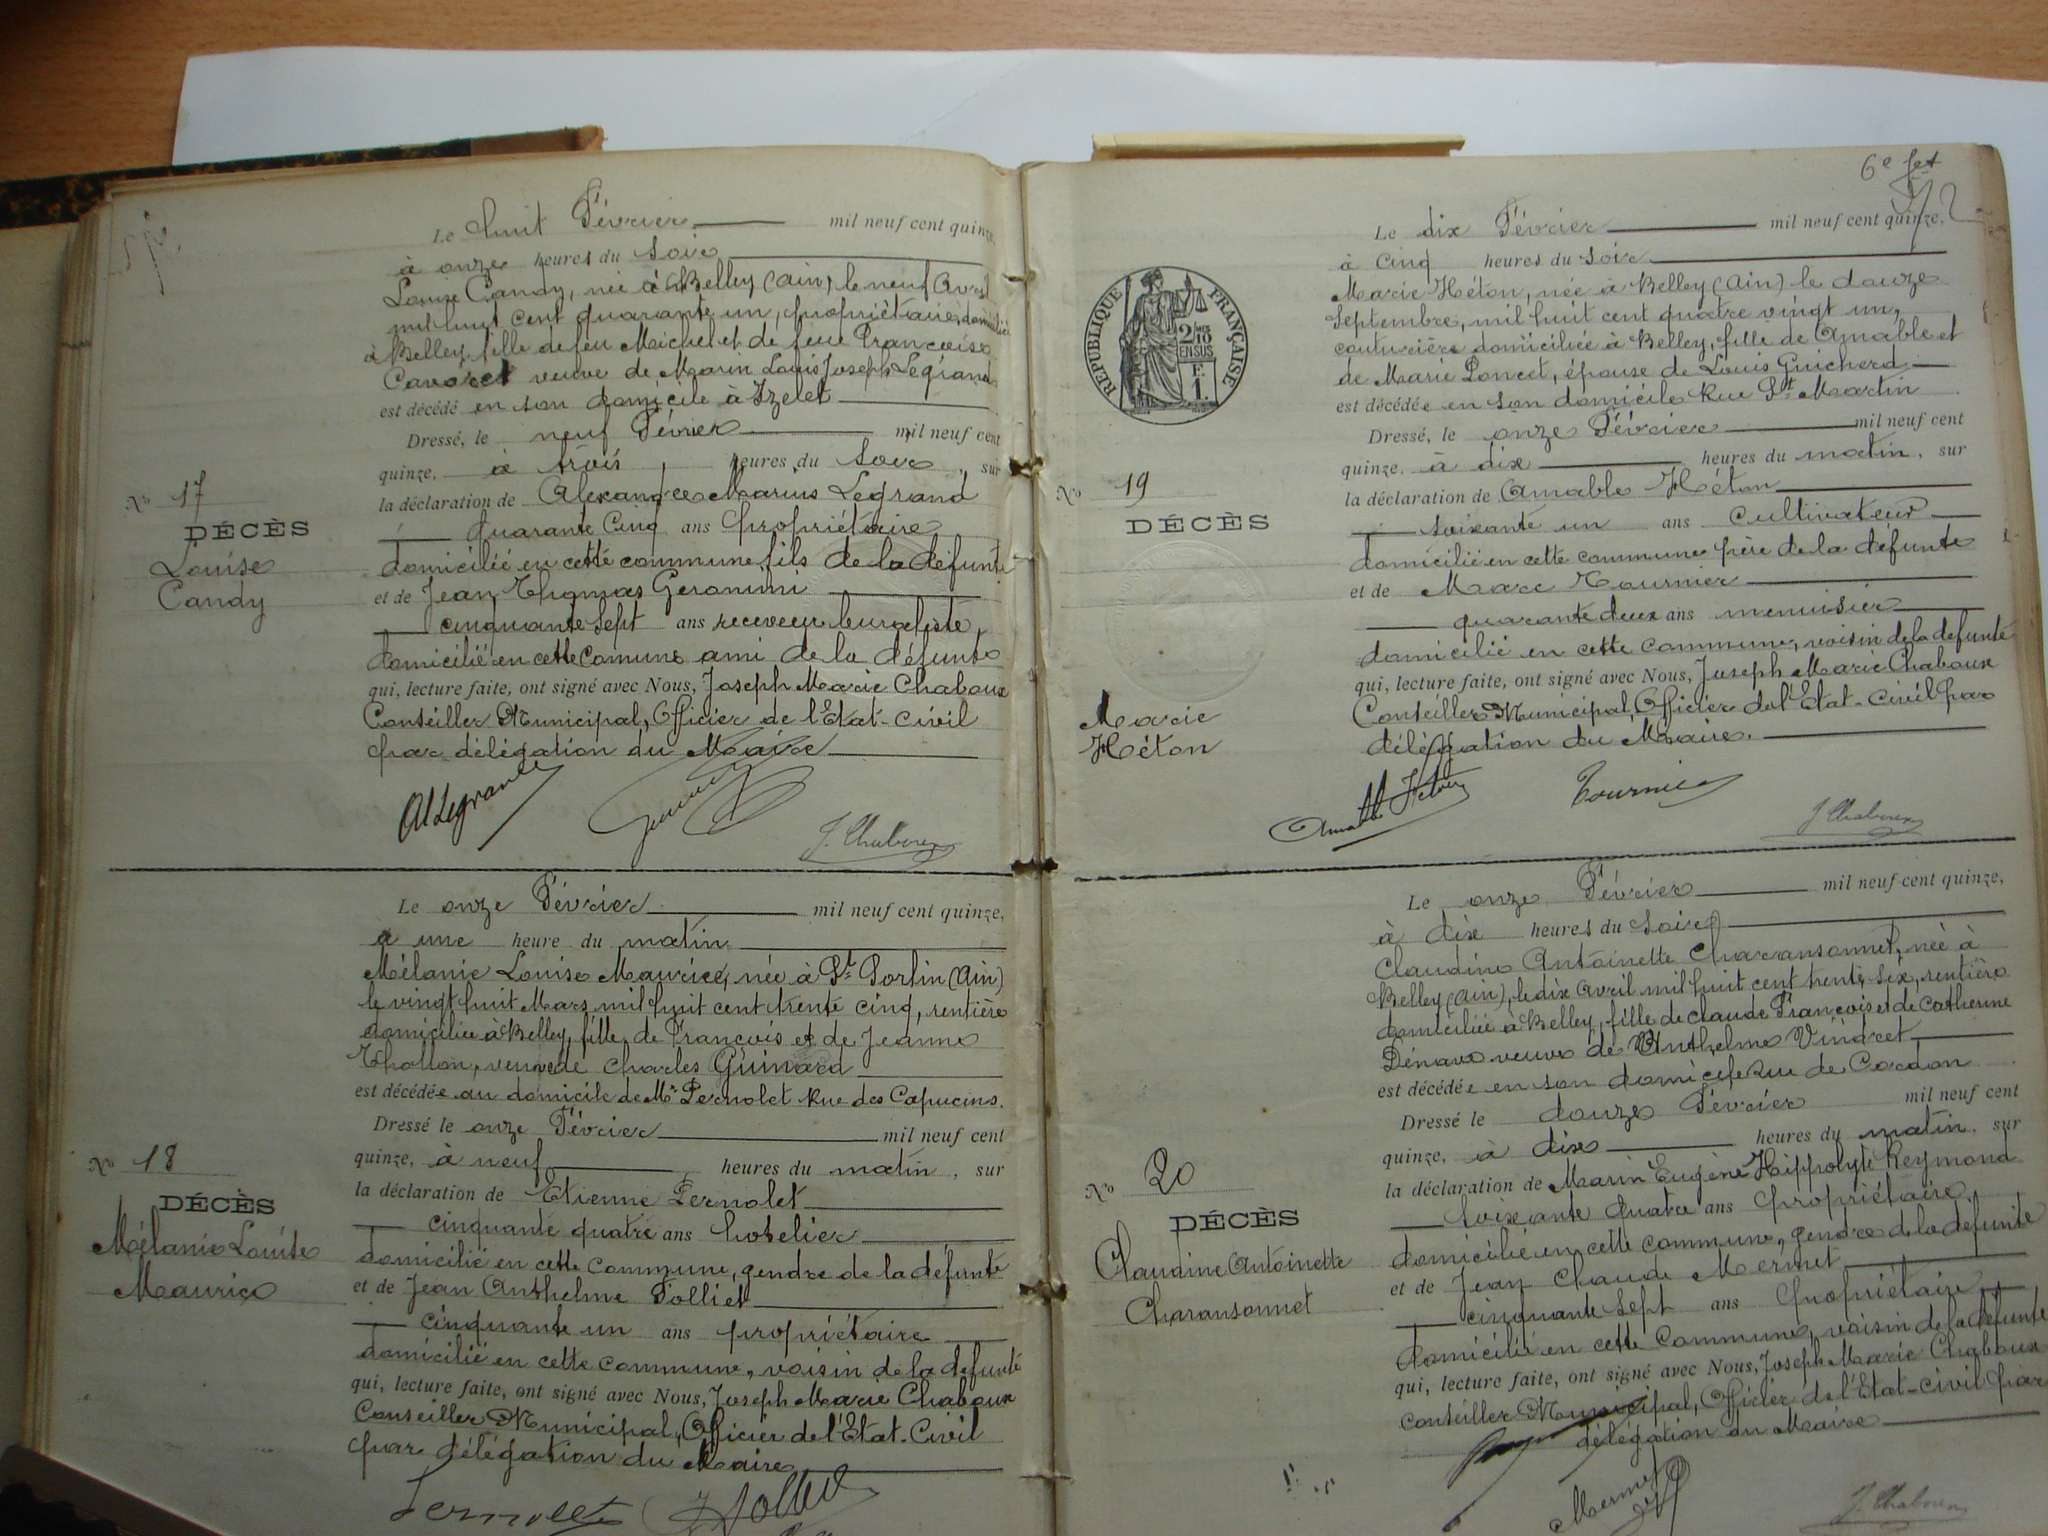 Le huit Février mil neuf cent quinze,
à onze heures du soir
Louise Candy, née à Belley (Ain) le neuf Avril
mil huit cent quarante un, propriétaire, domiciliée
à Belley, fille de feu Michel et de feue Françoise
Cavoret veuve de Marin Louis Joseph Legrand
est décédé en son domicile à Izelet
Dressé, le neuf Février mil neuf cent
quinze, à trois heures du soir, sur
la déclaration de Alexandre Marius Legrand
quarante cinq ans propriétaire
domiciliée en cette commune fils de la défunte
et de Jean Thomas Geronimi
cinquante sept ans receveur buraliste,
domicilié en cette comune ami de la défunte
qui, lecture faite, ont signé avec Nous, Joseph Marie Chaboux
Conseiller Municipal, Officier de l'Etat-civil
par délégation du Maire
No 17
DÉCÈS
Louise
Candy
Al Legrand
J. Chaboux
Le onze Février mil neuf cent quinze,
à une heure du matin
Mélanie Louise Maurice, née à St Sorlin (Ain)
le vingt huit Mars mil huit cent trente cinq, rentière
domiciliée à Belley, fille de François et de Jeanne
Thollon, veuve de Charles Guinard
est décédée au domicile de Mr Pernolet Rue des Capucins.
Dressé le onze Février mil neuf cent
quinze, à neuf heures du matin, sur
la déclaration de Etienne Pernolet
cinquante quatre ans hotelier
domicilié en cette commune, gendre de la défunte
et de Jean Anthelme Tolliet
cinquante un ans propriétaire
domicilié en cette commune, voisin de la défunte
qui, lecture faite, ont signé avec Nous, Joseph Marie Chaboux
Conseiller Municipal, Officier de l'Etat-Civil
par délégation du Maire
No 18
DÉCÈS
Mélanie Louise
Maurice
Pernollet
6e fet
RÉPUBLIQUE FRANÇAISE
2/10
EN SUS
F.
1.
Le dix Février mil neuf cent quinze,
à cinq heures du soir
Marie Héton, née à Belley (Ain) le douze
Septembre, mil huit cent quatre vingt un,
couturière domiciliée à Belley, fille de Amable et
de Marie Poncet, épouse de Louis Guicherd
est décédée en son domicile Rue St Martin
Dressé, le onze Février mil neuf cent
quinze, à dix heures du matin, sur
la déclaration de Amable Héton
soixante un ans cultivateur
domicilié en cette commune père de la défunte
et de Marc Tournier
quarante deux ans menuisier
domicilié en cette commune, voisin de la défunte
qui, lecture faite, ont signé avec Nous, Joseph Marie Chaboux
Conseiller Municipal, Officier de l'Etat-civil par
délégation du Maire.
No 19
DÉCÈS
Marie
Héton
Amable Héton
Tournier
J. Chaboux
Le onze Février mil neuf cent quinze,
à dix heures du soir
Claudine Antoinette Charansonnet, née à
Belley (Ain), le dix avril mil huit cent trente six, rentière
domiciliée à Belley, fille de Claude François et de Catherine
veuve de Anthelme Vindret
est décédée en son domicile Rue de Cordon
Dressé le douze Février mil neuf cent
quinze, à dix heures du matin, sur
la déclaration de Marin Eugène Hippolyte Reymond
soixante quatre ans propriétaire,
domicilié en cette commune, gendre de la défunte
et de Jean Claude Mermet
cinquante sept ans propriétaire
domicilié en cette commune, voisin de la défunte
qui, lecture faite, ont signé avec Nous, Joseph Marie Chaboux
conseiller Municipal, Officier de l'Etat-civil par
délégation du Maire
No 20
DÉCÈS
Claudine Antoinette
Charansonnet
Mermet
J. Chaboux